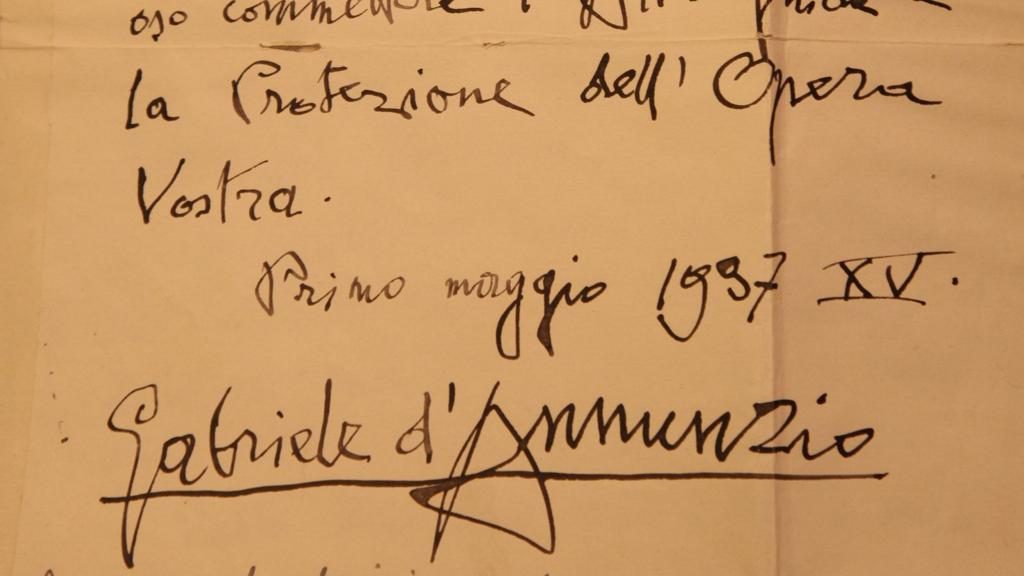 oso commettere
la Protezione dell'Opera
Vostra.
Primo maggio 1937 XV.
Gabriele d'Annunzio